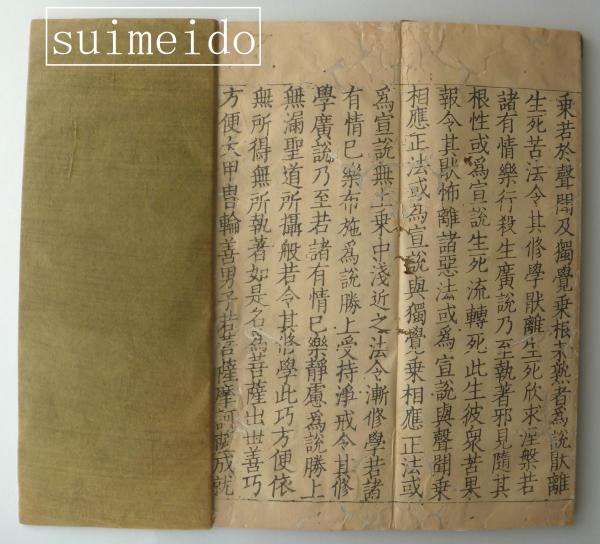 suimeido
乘若於聲聞及獨覺乘根未熟者爲說猒離
生死苦法令其修學猒離生死欣求涅槃若
諸有情樂行殺生廣說乃至執著邪見隨其
根性或爲宣說生死流轉死此生彼眾苦果
報令其猒怖離諸惡法或爲宣說與聲聞乘
相應正法或爲宣說與獨覺乘相應正法或
爲宣說無上乘中淺近之法令漸修學若諸
有情已樂布施爲說勝上受持淨戒令其修
學廣說乃至若諸有情已樂靜慮爲說勝上
無漏聖道所攝般若令其修學此巧方便依
無所得無所執著如是名爲菩薩出世善巧
方便大甲冑輪善男子若菩薩摩訶薩成就